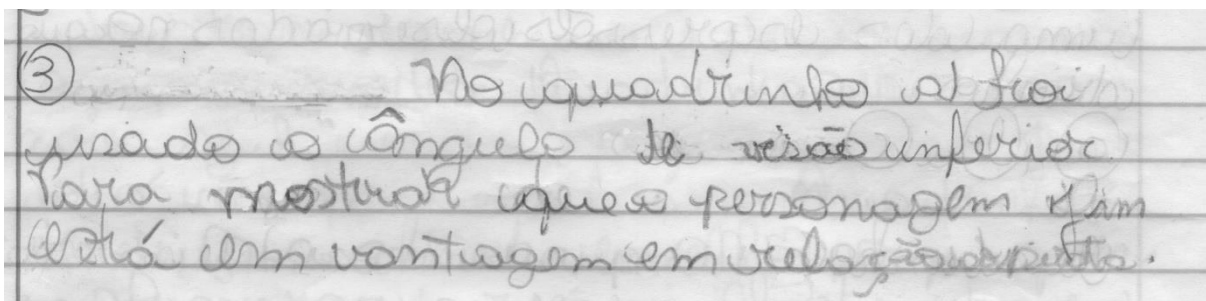 ③ No quadrinho a) foi
usado o ângulo de visão inferior
Para mostrar que o personagem Jim
está em vantagem em relação